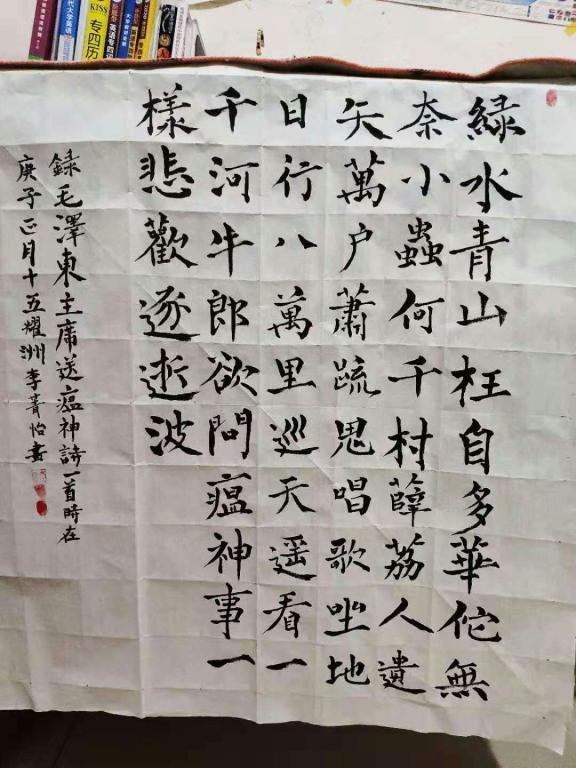 代大学英语
KISS
专四历
緑水青山枉自多華佗無
奈小蟲何千村薜荔人遺
矢萬户蕭疏鬼唱歌坐地
日行八萬里巡天遥看一
千河牛郎欲問瘟神事一
樣悲歡逐逝波
録毛澤東主席送瘟神詩一首時在
庚子正月十五耀洲李菁怡書